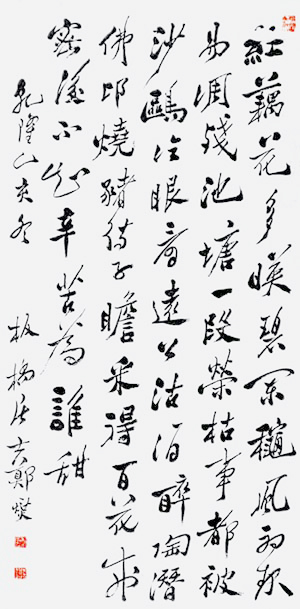 紅藕花多暎碧闌穐風初起
易凋殘池塘一段榮枯事都被
沙鷗冷眼看遠公沽酒醉陶潛
佛印燒豬待子瞻采得百花成
蜜後不知辛苦為誰甜
乾隆乙亥冬 板橋居士鄭燮